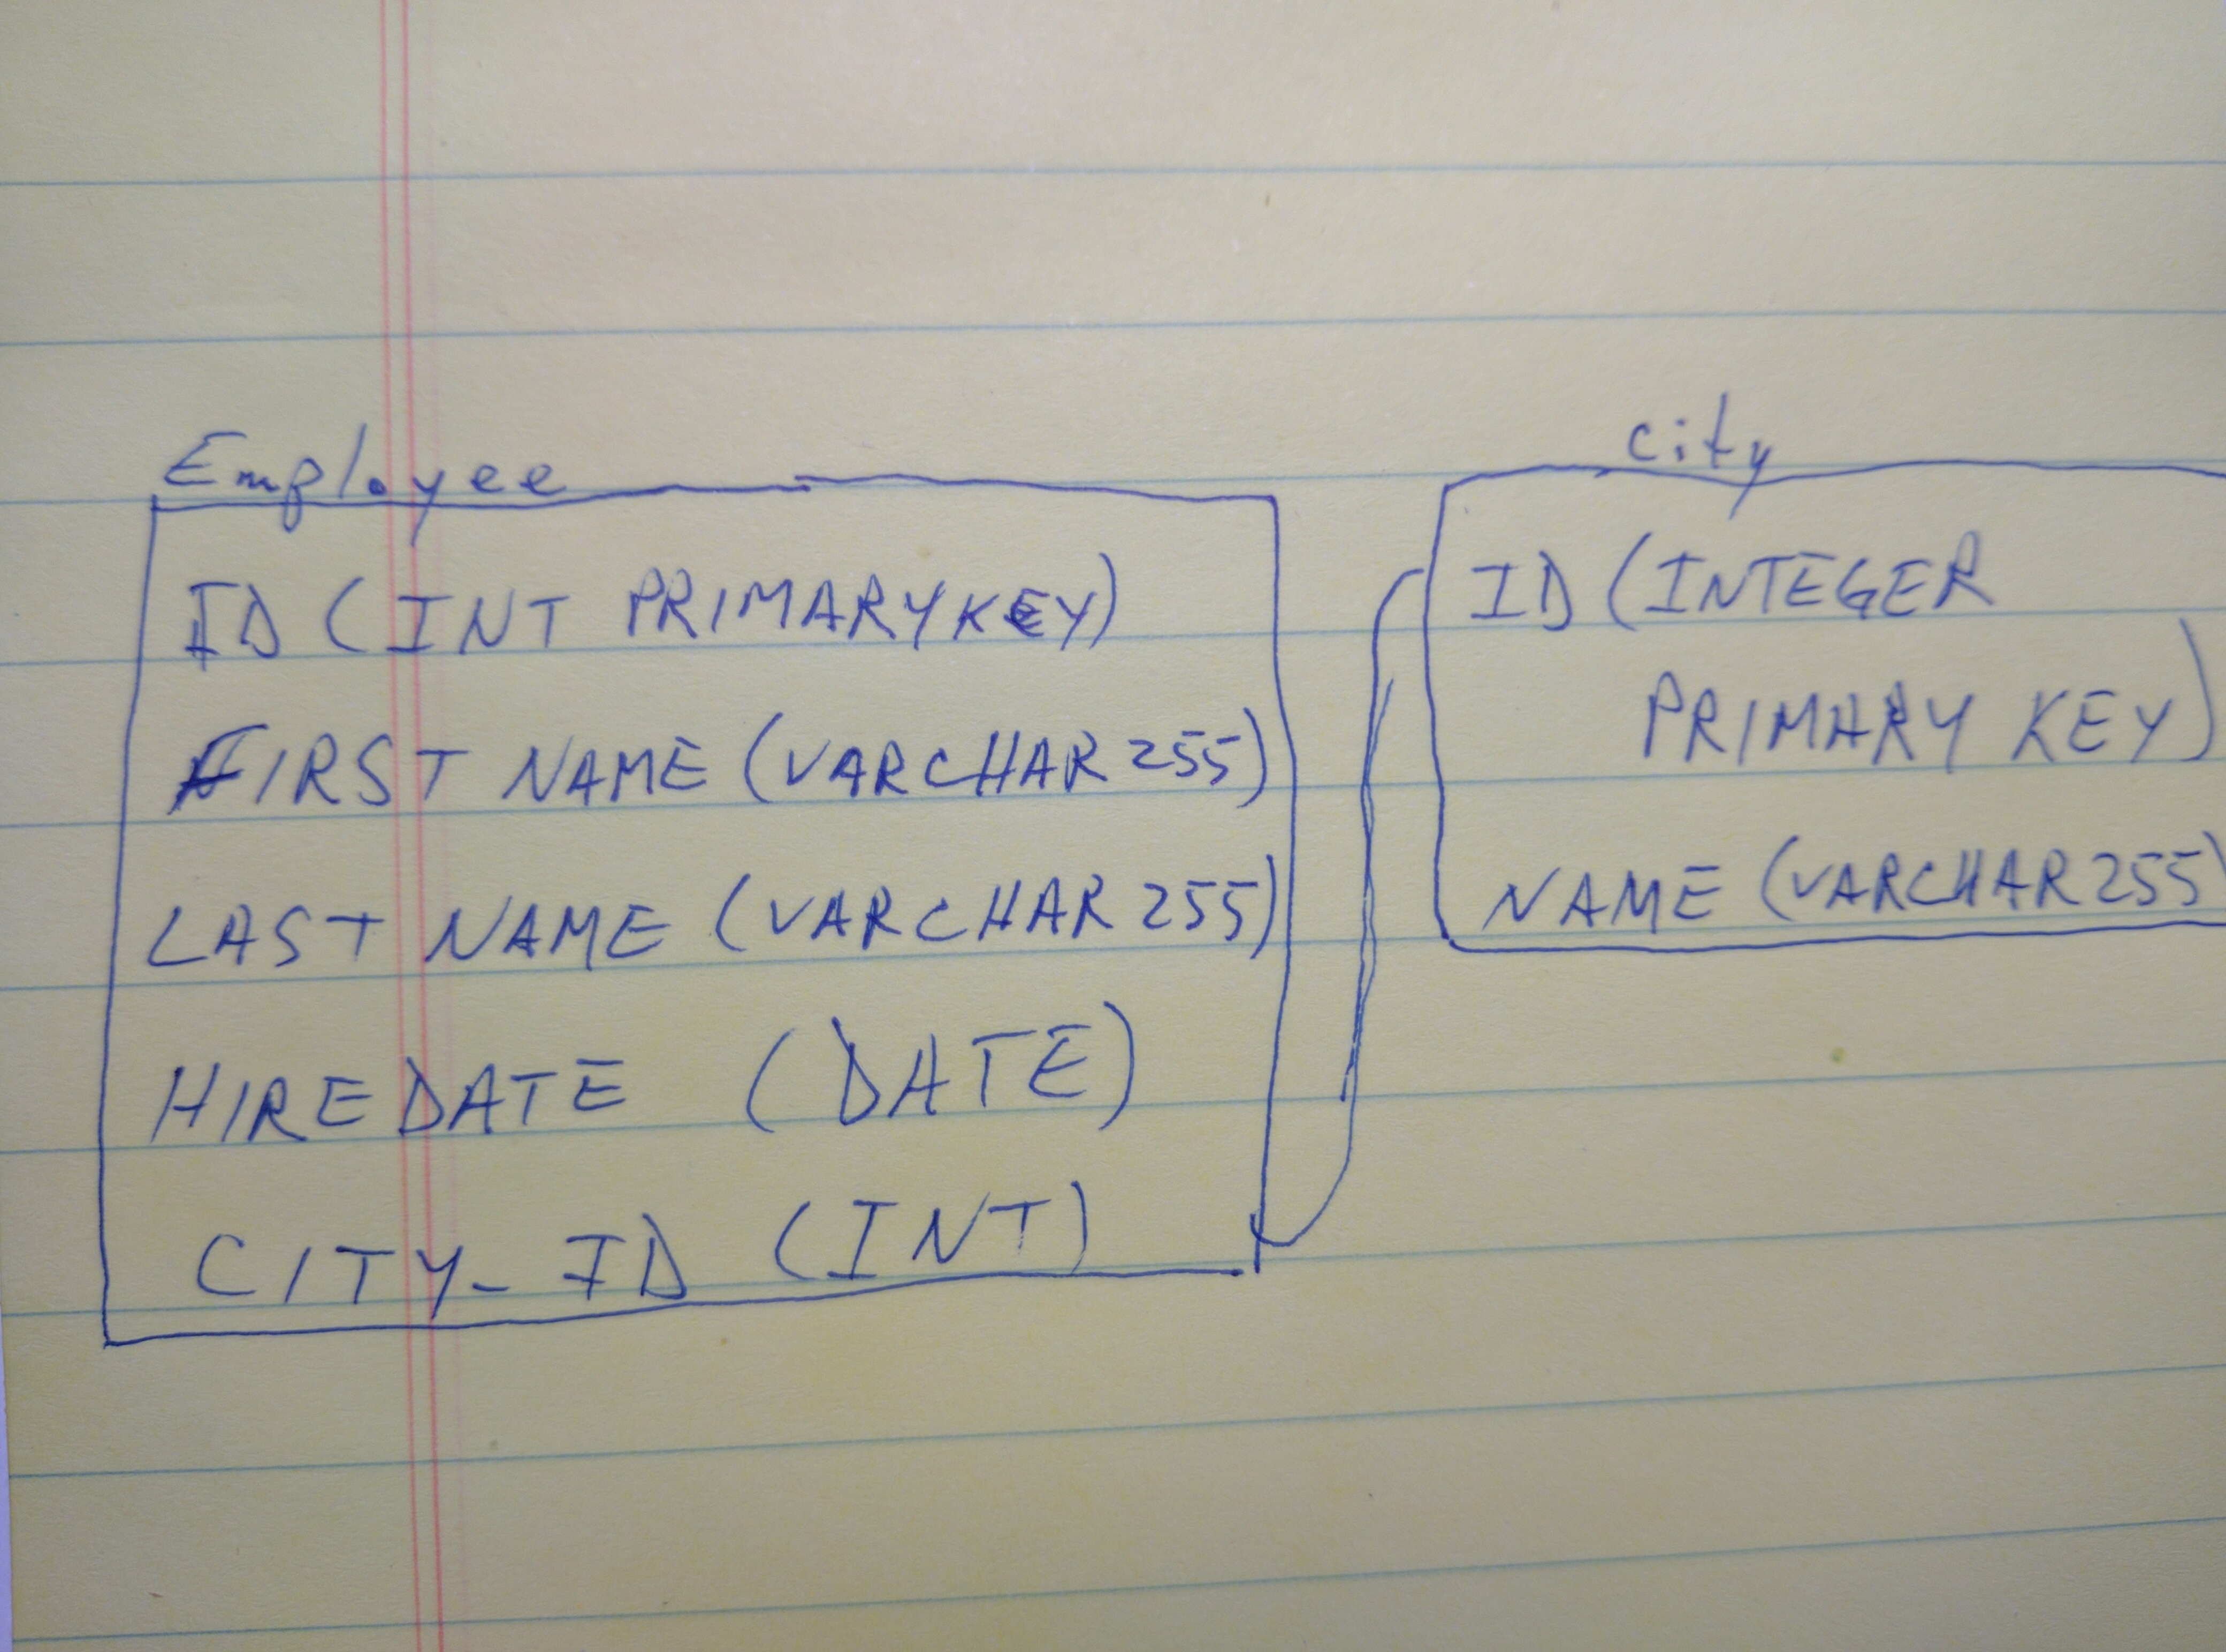 Employee
ID (INT PRIMARY KEY)
FIRST NAME (VARCHAR 255)
LAST NAME (VARCHAR 255)
HIRE DATE (DATE)
CITY_ID (INT)
City
ID (INTEGER
PRIMARY KEY)
NAME (VARCHAR 255)